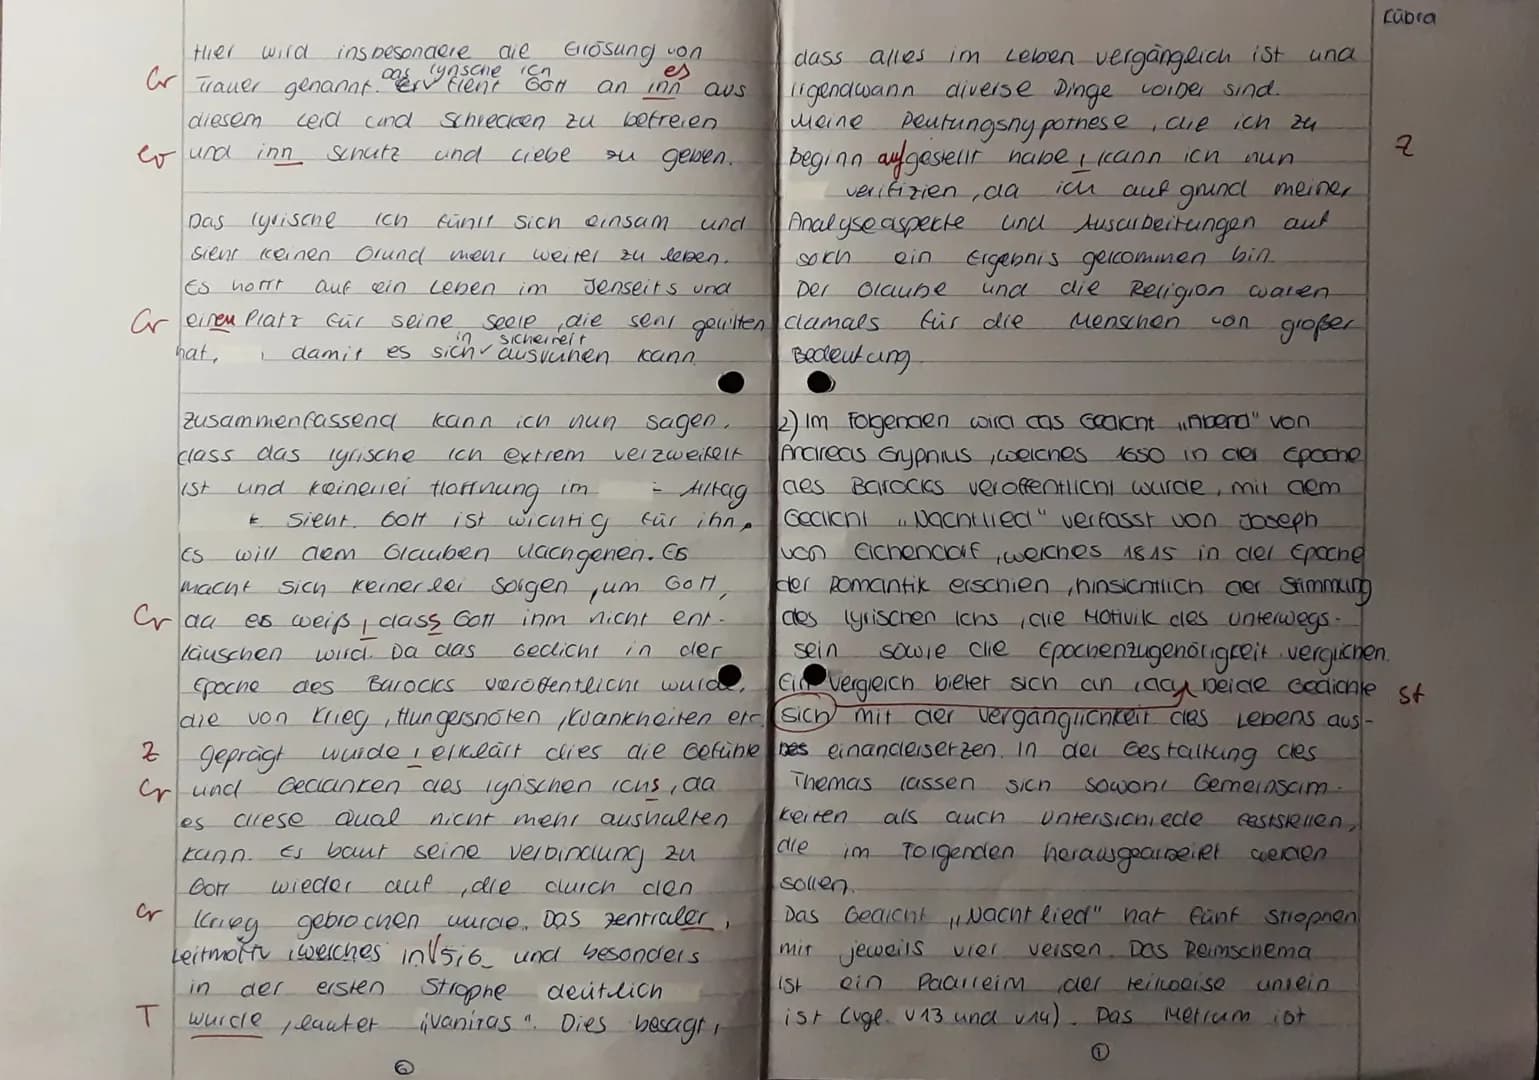 Hier wird insbesondere die Erlösung von
Gr Trauer genannt. das lyrische ich fleht Gott an ihn es aus
diesem Leid und Schrecken zu befreien
Gr und ihn Schutz und Liebe zu geben.
Das lyrische Ich fühlt sich einsam und
sieht keinen Grund mehr weiter zu leben.
Es hofft auf ein Leben im Jenseits und
Gr einen Platz für seine Seele, die sehr gelitten
hat, damit es sich in sicherheit ausruhen kann
Zusammenfassend kann ich nun sagen,
dass das lyrische Ich extrem verzweifelt
ist und keinerlei Hoffnung im Alltag
sieht. Gott ist wichtig für ihn,
Es will dem Glauben nachgehen. Es
macht sich keinerlei Sorgen, um Gott,
Gr da es weiß, dass Gott ihm nicht ent-
täuschen wird. Da das Gedicht in der
Epoche des Barocks veröffentlicht wurde,
die von Krieg, Hungersnöten, Krankheiten etc.
Z geprägt wurde, erklärt dies die Gefühle
Gr und Gedanken des lyrischen Ichs, da
es diese Qual nicht mehr aushalten
kann. Es baut seine Verbindung zu
Gott wieder auf, die durch den
Gr Krieg gebrochen wurde. Das zentraler,
Leitmotiv, welches in V5,6 und besonders
in der ersten Strophe deutlich
T wurde, lautet "Vanitas". Dies besagt,
6
Kübra
dass alles im Leben vergänglich ist und
irgendwann diverse Dinge vorbei sind.
Meine Deutungshypothese, die ich zu
beginn aufgestellt habe, kann ich nun Z
verifizien, da ich auf grund meiner
Analyseaspekte und Ausarbeitungen auf
solch ein Ergebnis gekommen bin.
Der Glaube und die Religion waren
damals für die Menschen von großer
Bedeutung.
2) Im Folgenden wird das Gedicht „Abend" von
Andreas Gryphius, welches 1650 in der Epoche
des Barocks veröffentlicht wurde, mit dem
Gedicht „Nachtlied" verfasst von Joseph
von Eichendorf, welches 1815 in der Epoche
der Romantik erschien, hinsichtlich der Stimmung
des lyrischen Ichs, die Motivik des Unterwegs-
sein sowie die Epochenzugehörigkeit verglichen.
Ein Vergleich bietet sich an, da beide Gedichte St
sich mit der Vergänglichkeit des Lebens aus-
einandersetzen. In der Gestaltung des
Themas lassen sich sowohl Gemeinsam-
keiten als auch Untersichiede feststellen,
die im Folgenden herausgearbeitet werden
sollen.
Das Gedicht „Nachtlied" hat fünf Strophen
mit jeweils vier Versen. Das Reimschema
ist ein Paarreim, der teilweise unrein
ist (vgl. V13 und V14). Das Metrum ist
1